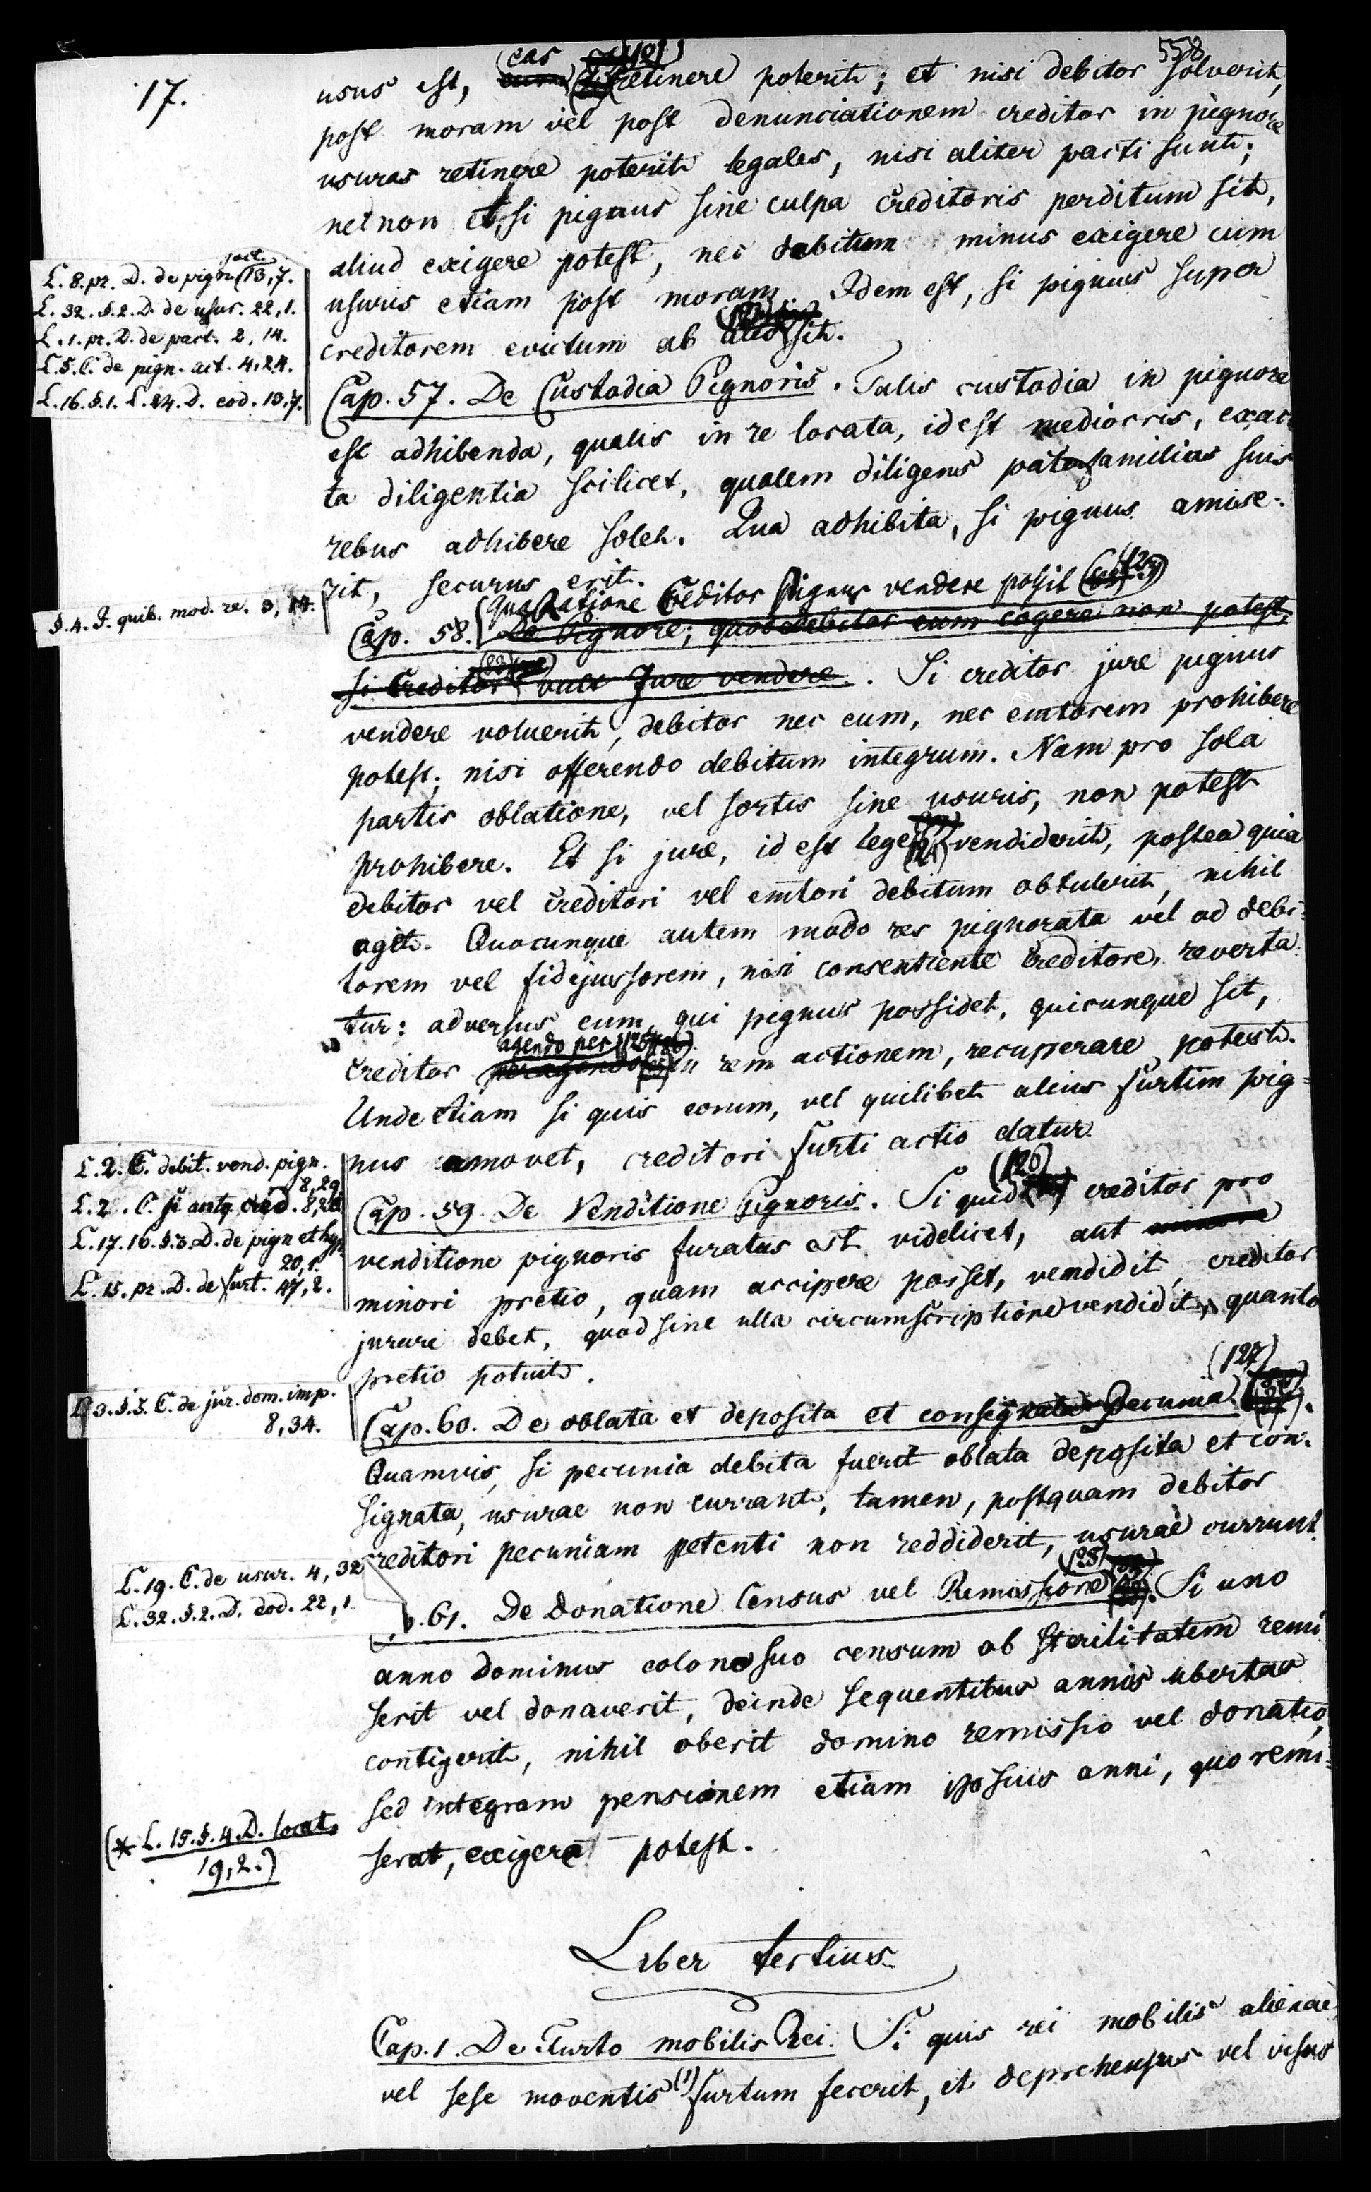 558
17.
usus est, eas retinere poterit; et nisi debitor solverit,
post moram vel post denunciationem creditor in pignore
usuras retinere poterit legales, nisi aliter pacti sunt;
nec non et, si pignus sine culpa creditoris perditum sit,
aliud exigere potest, nec debitum minus exigere cum
usuris etiam post moram. Idem est, si pignus super
creditorem evictum ab alio sit.
L. 8. pr. D. de pign. act. 13,7.
L. 32. §. 2. D. de usur. 22,1.
L. 1. pr. D. de pact. 2, 14.
L. 5. C. de pign. act. 4,24.
L. 16. §. 1. L. 24. D. eod. 13,7.
Cap. 57. De Custodia Pignoris. Talis custodia in pignore
est adhibenda, qualis in re locata, id est mediocris, exac-
ta diligentia scilicet, qualem diligens paterfamilias suis
rebus adhibere solet. Qua adhibita, si pignus amise-
rit, securus erit.
§. 4. I. quib. mod. re. 3, 14.
Qua Ratione Creditor Pignus vendere possit
Cap. 58. De Pignore; quod debitor eum cogere non potest,
si Creditor vult Jure vendere. Si creditor jure pignus
vendere voluerit, debitor nec eum, nec emtorem prohibere
potest; nisi offerendo debitum integrum. Nam pro sola
partis oblatione, vel sortis sine usuris, non potest
prohibere. Et si jure, id est lege vendiderit, postea quia
debitor vel creditori vel emtori debitum obtulerit, nihil
agit. Quocunque autem modo res pignorata vel ad debi-
torem vel fidejussorem, nisi consentiente creditore, reverta-
tur: adversus eum, qui pignus possidet, quicunque sit,
agendo per
creditor peragendo in rem actionem, recuperare poterit.
Unde etiam si quis eorum, vel quilibet alius furtim pig-
nus amovet, creditori furti actio datur.
L. 2. C. debit. vend. pign.
8,29.
L. 2. C. si antiq. cred. 8,20
L. 17. 16. §. 3. D. de pign et hyp.
20,1.
L. 15. pr. D. de furt. 47,2.
Cap. 59. De Venditione Pignoris. Si quid (126) creditor pro
venditione pignoris furatus est videlicet, aut minore
minori pretio, quam accipere posset, vendidit, creditor
jurare debet, quod sine ulla circumscriptione vendidit, quanto
pretio potuit.
L. 3. §. 3. C. de jur. dom. imp.
8,34.
(127)
Cap. 60. De oblata et deposita et consignata Pecunia.
Quamvis, si pecunia debita fuerit oblata deposita et con-
signata, usurae non currant, tamen, postquam debitor
creditori pecuniam petenti non reddiderit, usurae currunt.
L. 19. C. de usur. 4, 32
L. 32. §. 2. D. eod. 22, 1.
p. 61. De Donatione Census vel Remissione. Si uno
anno dominus colono suo censum ob sterilitatem remi-
serit vel donaverit, deinde sequentibus annis ubertas
contigerit, nihil oberit domino remissio vel donatio,
sed integram pensionem etiam ipsius anni, quo remi-
serat, exigere potest.
(* L. 15. §. 4. D. locat.
19,2.)
Liber tertius
Cap. 1. De Furto mobilis Rei. Si quis rei mobilis alienae,
vel sese moventis (1) furtum fecerit, et deprehensus vel visus